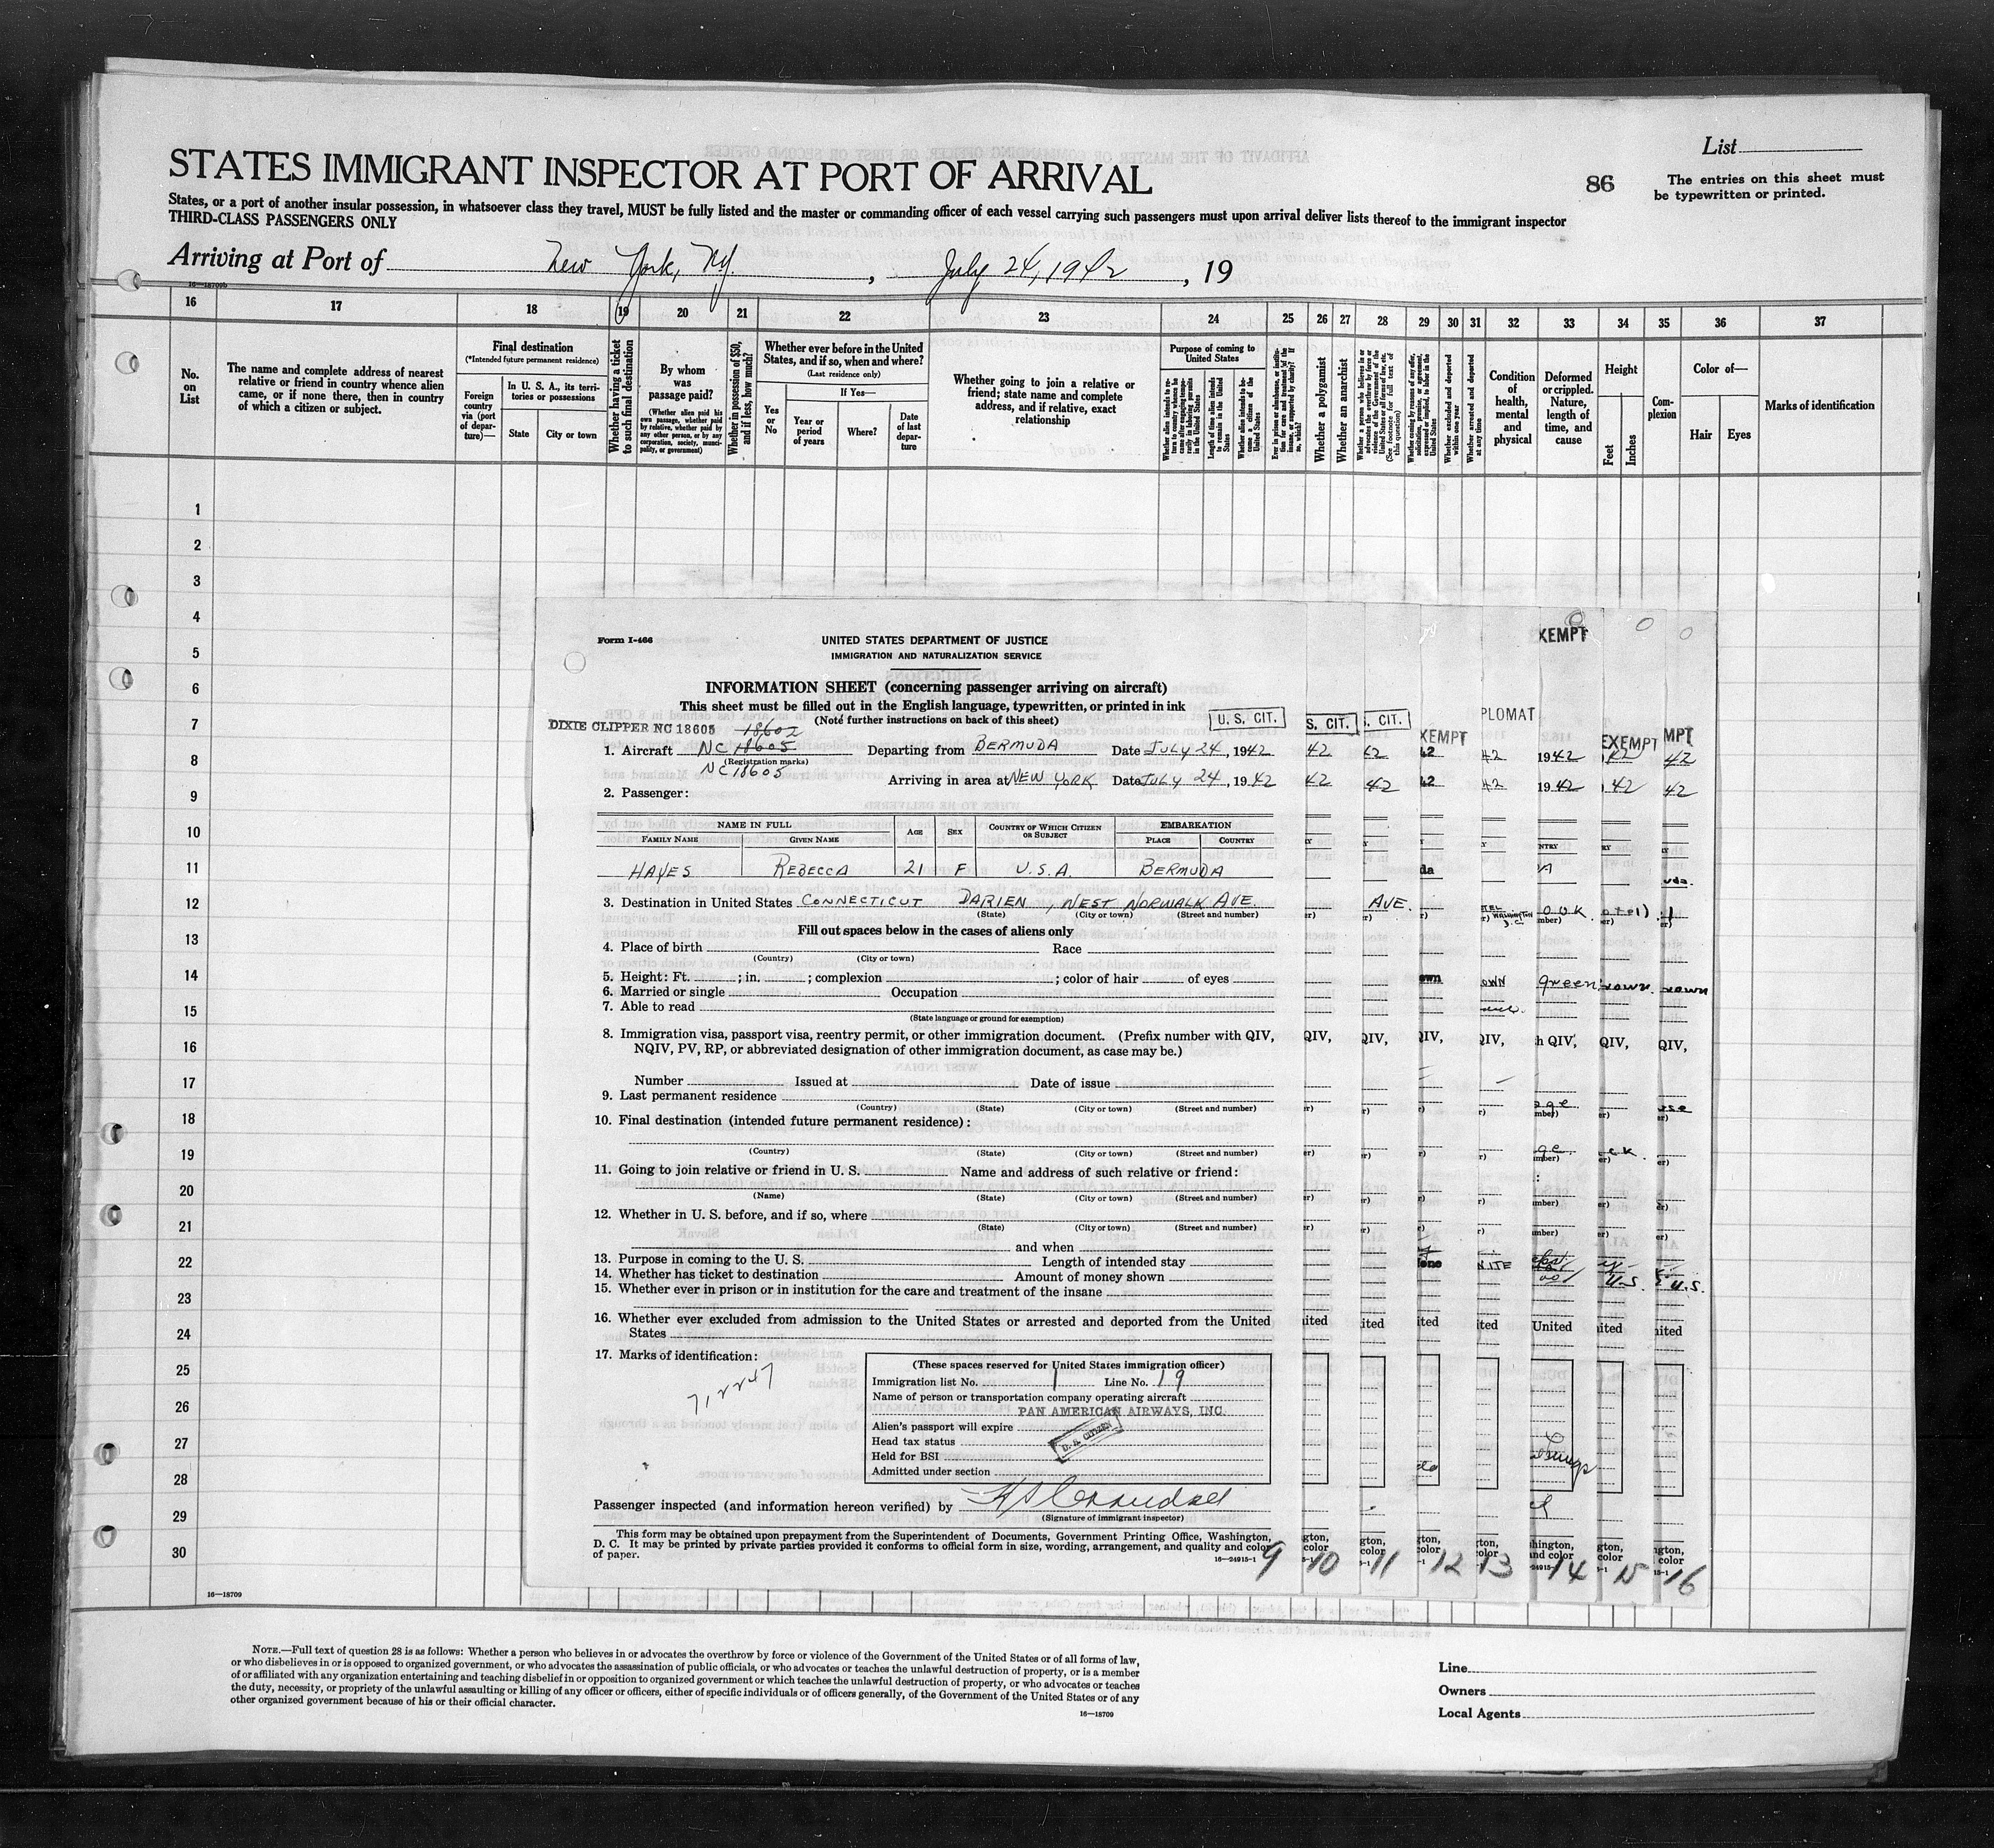 List
STATES IMMIGRANT INSPECTOR AT PORT OF ARRIVAL
86
The entries on this sheet must
be typewritten or printed.
States, or a port of another insular possession, in whatsoever class they travel, MUST be fully listed and the master or commanding officer of each vessel carrying such passengers must upon arrival deliver lists thereof to the immigrant inspector
THIRD-CLASS PASSENGERS ONLY
Arriving at Port of New York, NY. , July 24, 1942 , 19
16—18709b
16 17 18 19 20 21 22 23 24 25 26 27 28 29 30 31 32 33 34 35 36 37
No. on List
The name and complete address of nearest
relative or friend in country whence alien
came, or if none there, then in country
of which a citizen or subject.
Final destination
(*Intended future permanent residence)
Foreign country via (port of departure)—
In U. S. A., its territories or possessions
State
City or town
Whether having a ticket to such final destination
By whom was passage paid?
(Whether alien paid his own passage, whether paid by relative, whether paid by any other person, or by any corporation, society, municipality, or government)
Whether in possession of $50, and if less, how much?
Whether ever before in the United
States, and if so, when and where?
(Last residence only)
Yes or No
If Yes—
Year or period of years
Where?
Date of last departure
Whether going to join a relative or
friend; state name and complete
address, and if relative, exact
relationship
Purpose of coming to
United States
Length of time alien intends to remain in the United States
Whether alien intends to become a citizen of the United States
Whether a polygamist
Whether an anarchist
Whether excluded and deported within one year
Whether arrested and deported at any time
Condition of health, mental and physical
Deformed or crippled. Nature, length of time, and cause
Height
Feet
Inches
Complexion
Color of—
Hair
Eyes
Marks of identification
1
2
3
4
5
6
7
8
9
10
11
12
13
14
15
16
17
18
19
20
21
22
23
24
25
26
27
28
29
30
16—18709
Form I-466
UNITED STATES DEPARTMENT OF JUSTICE
IMMIGRATION AND NATURALIZATION SERVICE
INFORMATION SHEET (concerning passenger arriving on aircraft)
This sheet must be filled out in the English language, typewritten, or printed in ink
(Note further instructions on back of this sheet)
U. S. CIT.
DIXIE CLIPPER NC 18605 18602
1. Aircraft NC 18605 Departing from BERMUDA Date JULY 24, 1942
(Registration marks)
NC 18605
Arriving in area at NEW YORK Date JULY 24, 1942
2. Passenger:
NAME IN FULL AGE SEX COUNTRY OF WHICH CITIZEN OR SUBJECT EMBARKATION
FAMILY NAME GIVEN NAME PLACE COUNTRY
HAYES REBECCA 21 F U.S.A. BERMUDA
3. Destination in United States CONNECTICUT DARIEN, WEST NORWALK AVE.
(State) (City or town) (Street and number)
Fill out spaces below in the cases of aliens only
4. Place of birth Race
(Country) (City or town)
5. Height: Ft. ; in. ; complexion ; color of hair of eyes
6. Married or single Occupation
7. Able to read
(State language or ground for exemption)
8. Immigration visa, passport visa, reentry permit, or other immigration document. (Prefix number with QIV,
NQIV, PV, RP, or abbreviated designation of other immigration document, as case may be.)
Number Issued at Date of issue
9. Last permanent residence
(Country) (State) (City or town) (Street and number)
10. Final destination (intended future permanent residence):
(Country) (State) (City or town) (Street and number)
11. Going to join relative or friend in U. S. Name and address of such relative or friend:
(Name) (State) (City or town) (Street and number)
12. Whether in U. S. before, and if so, where
(State) (City or town) (Street and number)
and when
13. Purpose in coming to the U. S. Length of intended stay
14. Whether has ticket to destination Amount of money shown
15. Whether ever in prison or in institution for the care and treatment of the insane
16. Whether ever excluded from admission to the United States or arrested and deported from the United
States
17. Marks of identification:
7,2247
(These spaces reserved for United States immigration officer)
Immigration list No. 1 Line No. 19
Name of person or transportation company operating aircraft
PAN AMERICAN AIRWAYS, INC.
Alien's passport will expire
U. S. CITIZEN
Head tax status
Held for BSI
Admitted under section
Passenger inspected (and information hereon verified) by
(Signature of immigrant inspector)
This form may be obtained upon prepayment from the Superintendent of Documents, Government Printing Office, Washington,
D. C. It may be printed by private parties provided it conforms to official form in size, wording, arrangement, and quality and color
of paper.
16—24915-1
9 10 11 12 13 14 15 16
S. CIT.
S. CIT.
XEMPT
PLOMAT
XEMPT
EXEMPT
MPT
AVE.
green
NOTE.—Full text of question 28 is as follows: Whether a person who believes in or advocates the overthrow by force or violence of the Government of the United States or of all forms of law,
or who disbelieves in or is opposed to organized government, or who advocates the assassination of public officials, or who advocates or teaches the unlawful destruction of property, or is a member
of or affiliated with any organization entertaining and teaching disbelief in or opposition to organized government or which teaches the unlawful destruction of property, or who advocates or teaches
the duty, necessity, or propriety of the unlawful assaulting or killing of any officer or officers, either of specific individuals or of officers generally, of the Government of the United States or of any
other organized government because of his or their official character.
16—18709
Line
Owners
Local Agents